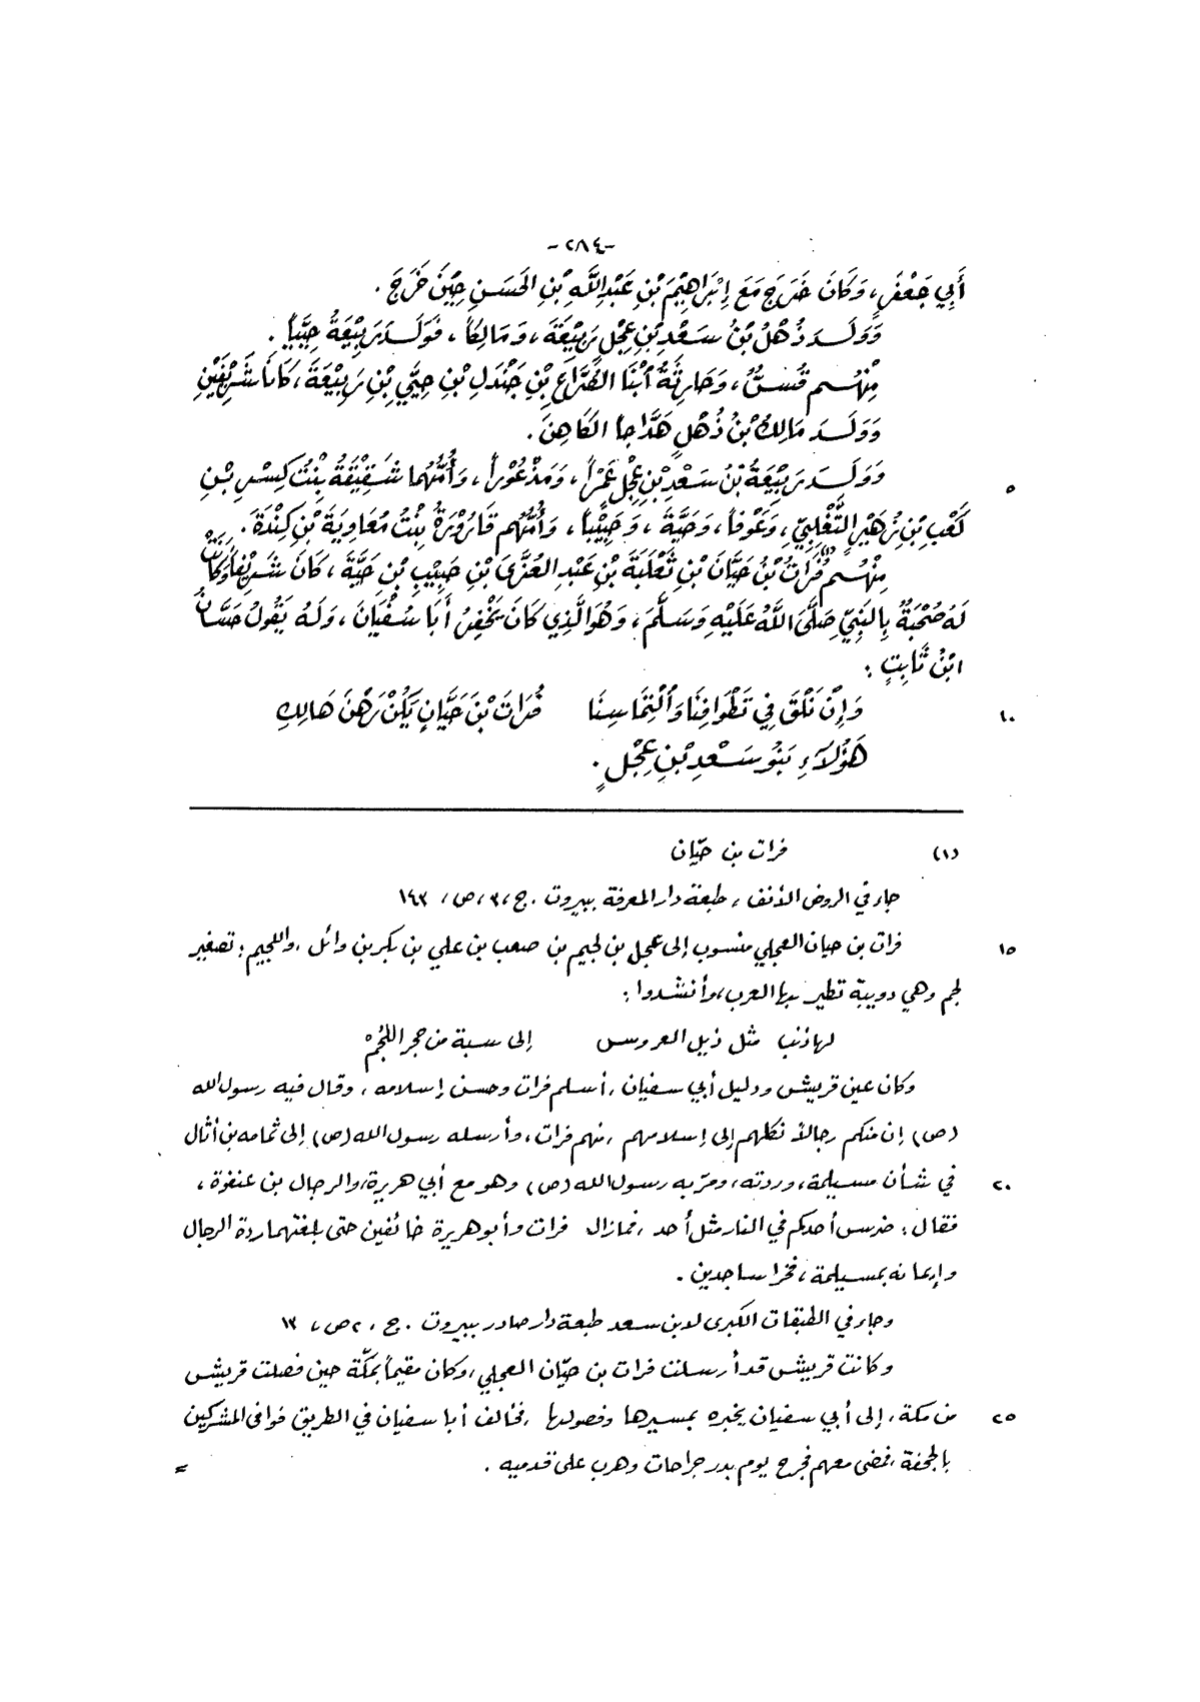 -٢٨٤-
أَبِي جَعْفَرٍ، وَكَانَ خَرَجَ مَعَ إِبْرَاهِيْمَ بْنِ عَبْدِ اللَّهِ بْنِ الحَسَنِ حِيْنَ خَرَجَ .
وَوَلَدَ ذُهْلُ بْنُ سَعْدِ بْنِ عِجْلٍ رَبِيْعَةَ، وَمَالِكَاً، فَوَلَدَ رَبِيْعَةُ حِيَّيَاً .
مِنْهُم قُسٌّ، وَحَارِثَةُ ابْنَا القَرَّاعِ بْنِ جَنْدَلِ بْنِ حِيَّيِ بْنِ رَبِيْعَةَ، كَانَا شَرِيْفَيْنِ
وَوَلَدَ مَالِكُ بْنُ ذُهْلٍ هَدَّاجَاً الكَاهِنَ .
٥ وَوَلَدَ رَبِيْعَةُ بْنُ سَعْدِ بْنِ عِجْلٍ عَمْرَاً، وَمَذْعُوْرَاً، وَأُمُّهُما شَقِيْقَةُ بِنْتُ كِسْرِ بْنِ
كَعْبِ بْنِ زُهَيْرٍ التَّغْلِبِيِّ، وَعَوْفَاً، وَحَيَّةَ، وَحَبِيْبَاً، وَأُمُّهُم قَارُوْرَةُ بِنْتُ مُعَاوِيَةَ بْنِ كِنْدَةَ .
مِنْهُم فُرَاتُ(١) بْنُ حَيَّانَ بْنِ ثَعْلَبَةَ بْنِ عَبْدِ العُزَّى بْنِ حَبِيْبِ بْنِ حَيَّةَ، كَانَ شَرِيْفَاً وَكَانَتْ
لَهُ صُحْبَةٌ بِالنَبِيِّ صَلَّى اللَّهُ عَلَيْهِ وَسَلَّمَ، وَهُوَ الَّذِي كَانَ يَخْفِرُ أَبَا سُفْيَانَ، وَلَهُ يَقُولُ حَسَّانُ
ابْنُ ثَابِتٍ :
١٠ وَإِنْ نَلْقَ فِي تَطْوَافِنَا وَالْتِمَاسِنَا فُرَاتَ بْنَ حَيَّانٍ يَكُنْ رَهْنَ هَالِكِ
هَؤُلَاءِ بَنُو سَعْدِ بْنِ عِجْلٍ .
(١) فرات بن حيّان
جاء في الروض الأنف، طبعة دار المعرفة ببيروت . ج، ٣، ص، ١٤٣
١٥ فرات بن حيان العجلي منسوب إلى عجل بن لجيم بن صعب بن علي بن بكر بن وائل، واللجيم : تصغير
لجم وهي دويبة تطير بها العرب، وأنشدوا :
لها ذنب مثل ذيل العروس إلى سبة من حجر اللُجُمْ
وكان عين قريش ودليل أبي سفيان، أسلم فرات وحسن إسلامه، وقال فيه رسول الله
(ص) إن منكم رجالاً نكلهم إلى إسلامهم، منهم فرات، وأرسله رسول الله (ص) إلى ثمامه بن أثال
٢٠ في شأن مسيلمة، وردته، ومرّ به رسول الله (ص) وهو مع أبي هريرة، والرجال بن عنفوة،
فقال : ضرس أحدكم في النار مثل أحد، فمازال فرات وأبو هريرة خائفين حتى بلغتهما ردة الرجال
وإيمانه بمسيلمة، فخرا ساجدين .
وجاء في الطبقات الكبرى لابن سعد طبعة دار صادر ببيروت . ج، ٢ ص، ١٣
وكانت قريش قد أرسلت فرات بن حيّان العجلي، وكان مقيماً بمكّة حين فصلت قريش
٢٥ من مكة، إلى أبي سفيان يخبره بمسيرها وفصولها، فخالف أبا سفيان في الطريق فوافى المشركين
بالجحفة، فمضى معهم فجرح يوم بدر جراحات وهرب على قدميه .
=